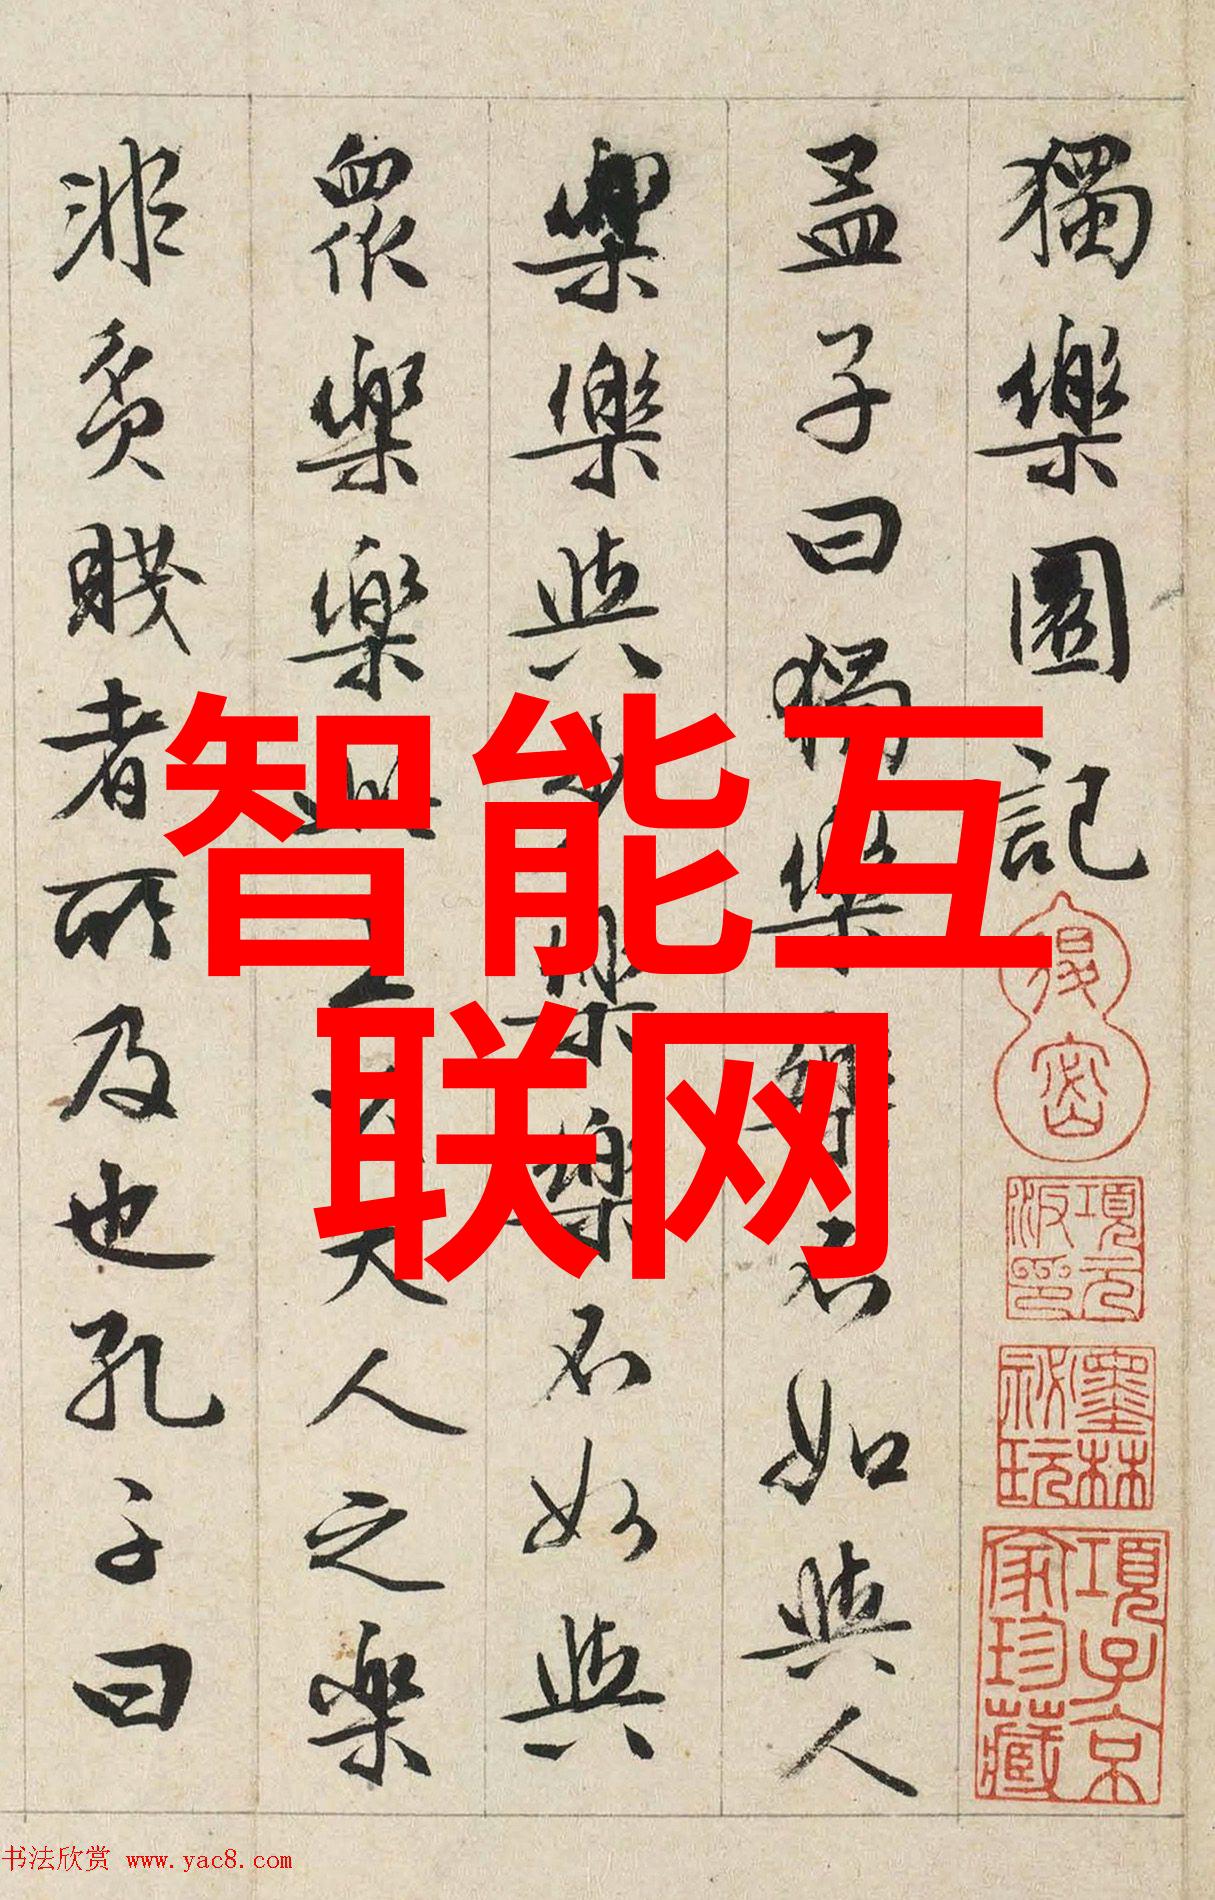 獨樂園記
孟子曰獨樂樂不如與人
樂樂與
樂樂不如與
眾樂樂
天人之樂
非貧賤者所及也孔子曰
智能互
联网
項子京
家珍藏
墨林
秘玩
书法欣赏 www.yac8.com